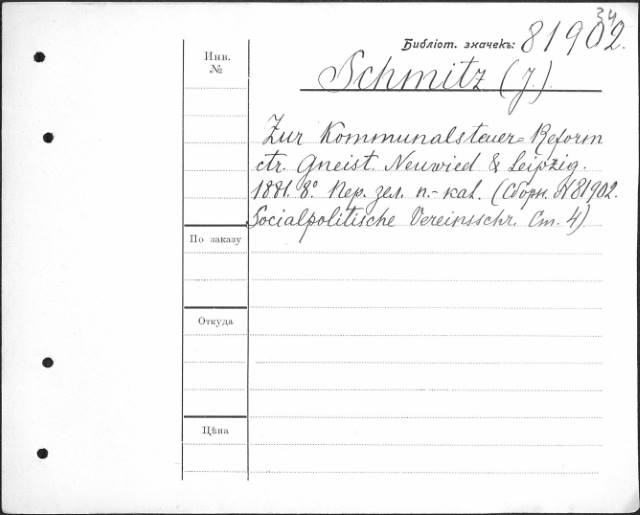 34
Библіот. значекъ: 81902.
Инв.
№
Schmitz (J.)
Zur Kommunalsteuer=Reform
ctr. Gneist. Neuwied & Leipzig.
1881. 8°. Пер. зел. п.-кал. (Сборн. №81902.
Socialpolitische Vereinsschr. Ст. 4)
По заказу
Откуда
Цѣна